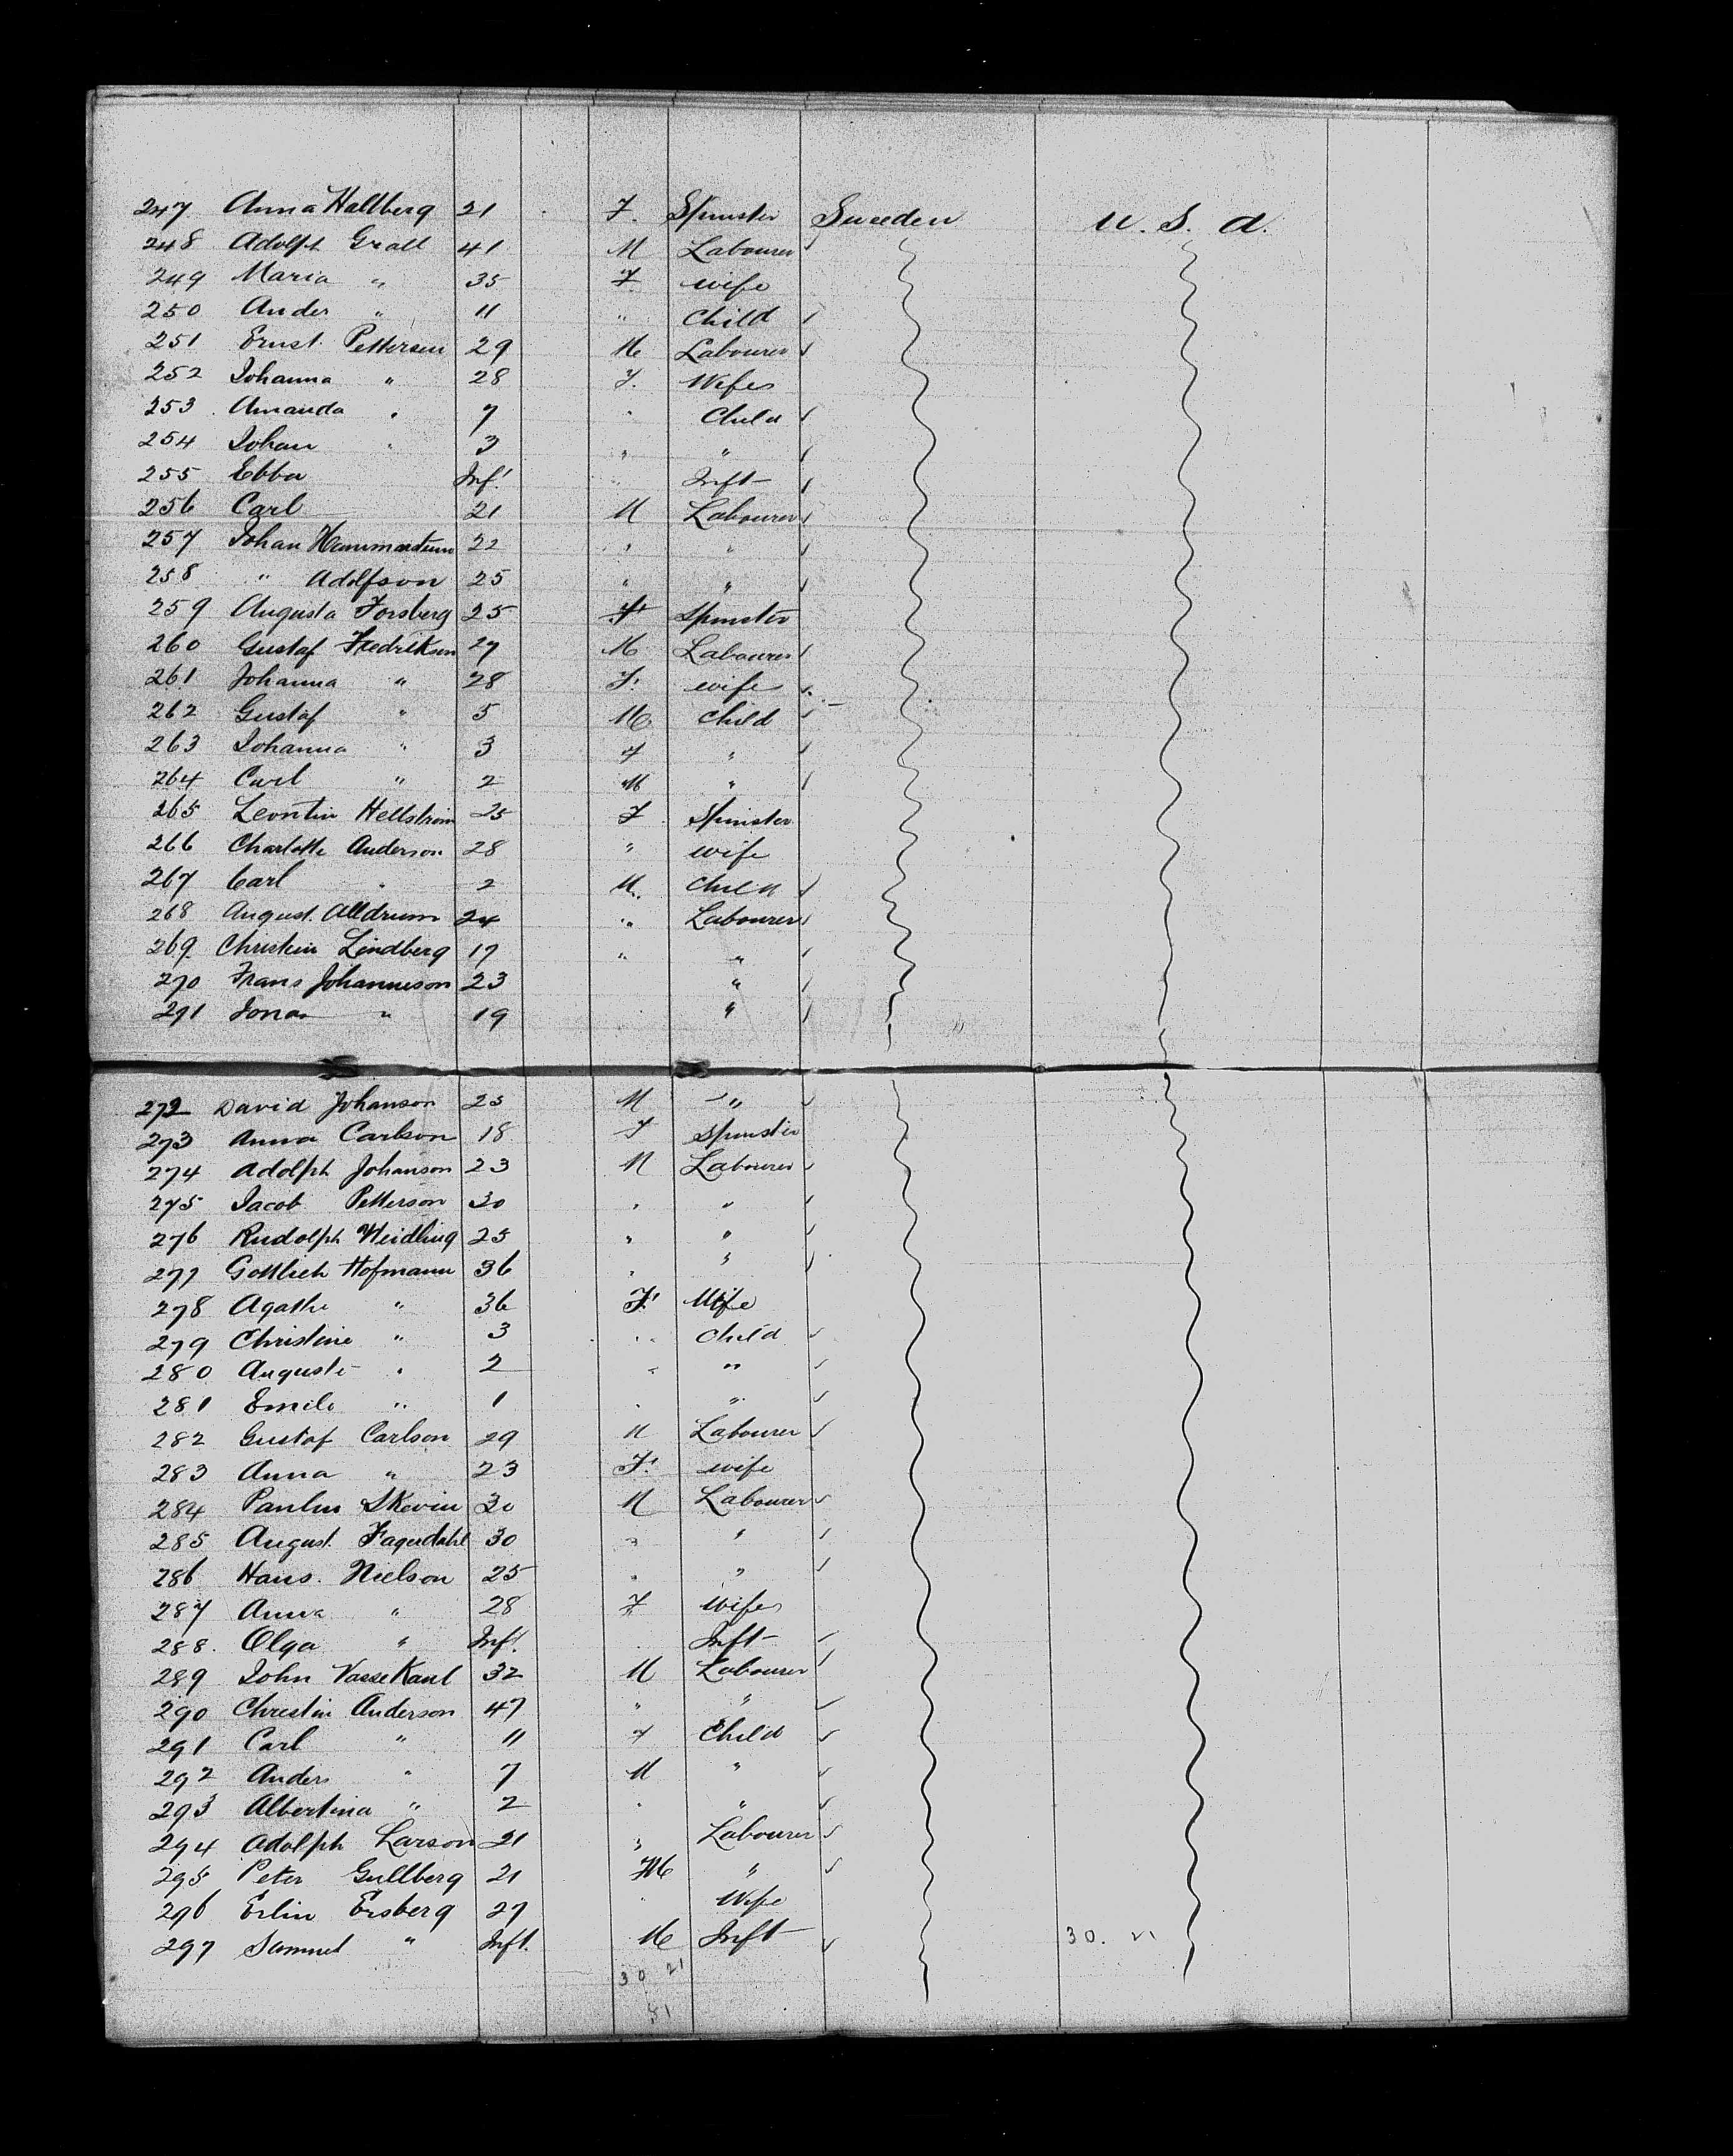 247 Anna Hallberg 21 F. Spinster Sweden U. S. A.
248 Adolph Grall 41 M Labourer
249 Maria " 35 F. wife
250 Ander " 11 " Child
251 Ernst Pettersen 29 M Labourer
252 Johanna " 28 F. Wife
253 Amanda " 7 " Child
254 Johan " 3 " "
255 Ebba Inft " Inft
256 Carl 21 M Labourer
257 Johan 22 " "
258 " Adolfson 25 " "
259 Augusta Forsberg 25 F Spinster
260 Gustaf Fredrikson 27 M Labourer
261 Johanna " 28 F. wife
262 Gustaf " 5 M Child
263 Johanna " 3 F "
264 Carl " 2 M "
265 Leontin Hellstrom 25 F Spinster
266 Charlotte Anderson 28 " wife
267 Carl " 2 M. Child
268 August. Alldrum 24 " Labourer
269. Christin Lindberg 17 " "
270 Frans Johanneson 23 "
291 Jonas " 19 "
272 David Johanson 25 M "
273 Anna Carlson 18 F Spinster
274 Adolph Johanson 23 M Labourer
275 Jacob Petterson 30 " "
276 Rudolph Weidling 25 " "
277 Gottlieb Hofmann 36 " "
278 Agathe " 36 F. Wife
279 Christine " 3 " Child
280 Auguste " 2 " "
281 Emile " 1 " "
282 Gustaf Carlson 29 M Labourer
283 Anna " 23 F. wife
284 Skevin 30 M Labourer
285 August. Fagerdahl 30 " "
286 Hans. Nielson 25 " "
287 Anna " 28 F Wife
288. Olga " Inft. Inft
289 John 32 M Labourer
290 Christin Anderson 47 " "
291 Carl " 11 F Child
292 Anders " 7 M "
293 Albertina " 2 " "
294 Adolph Larson 21 " Labourer
295 Peter Gullberg 21 M "
296 Erlin Ersberg 27 Wife
297 Samuel " Inft. M Inft 30. 21
30 21
51